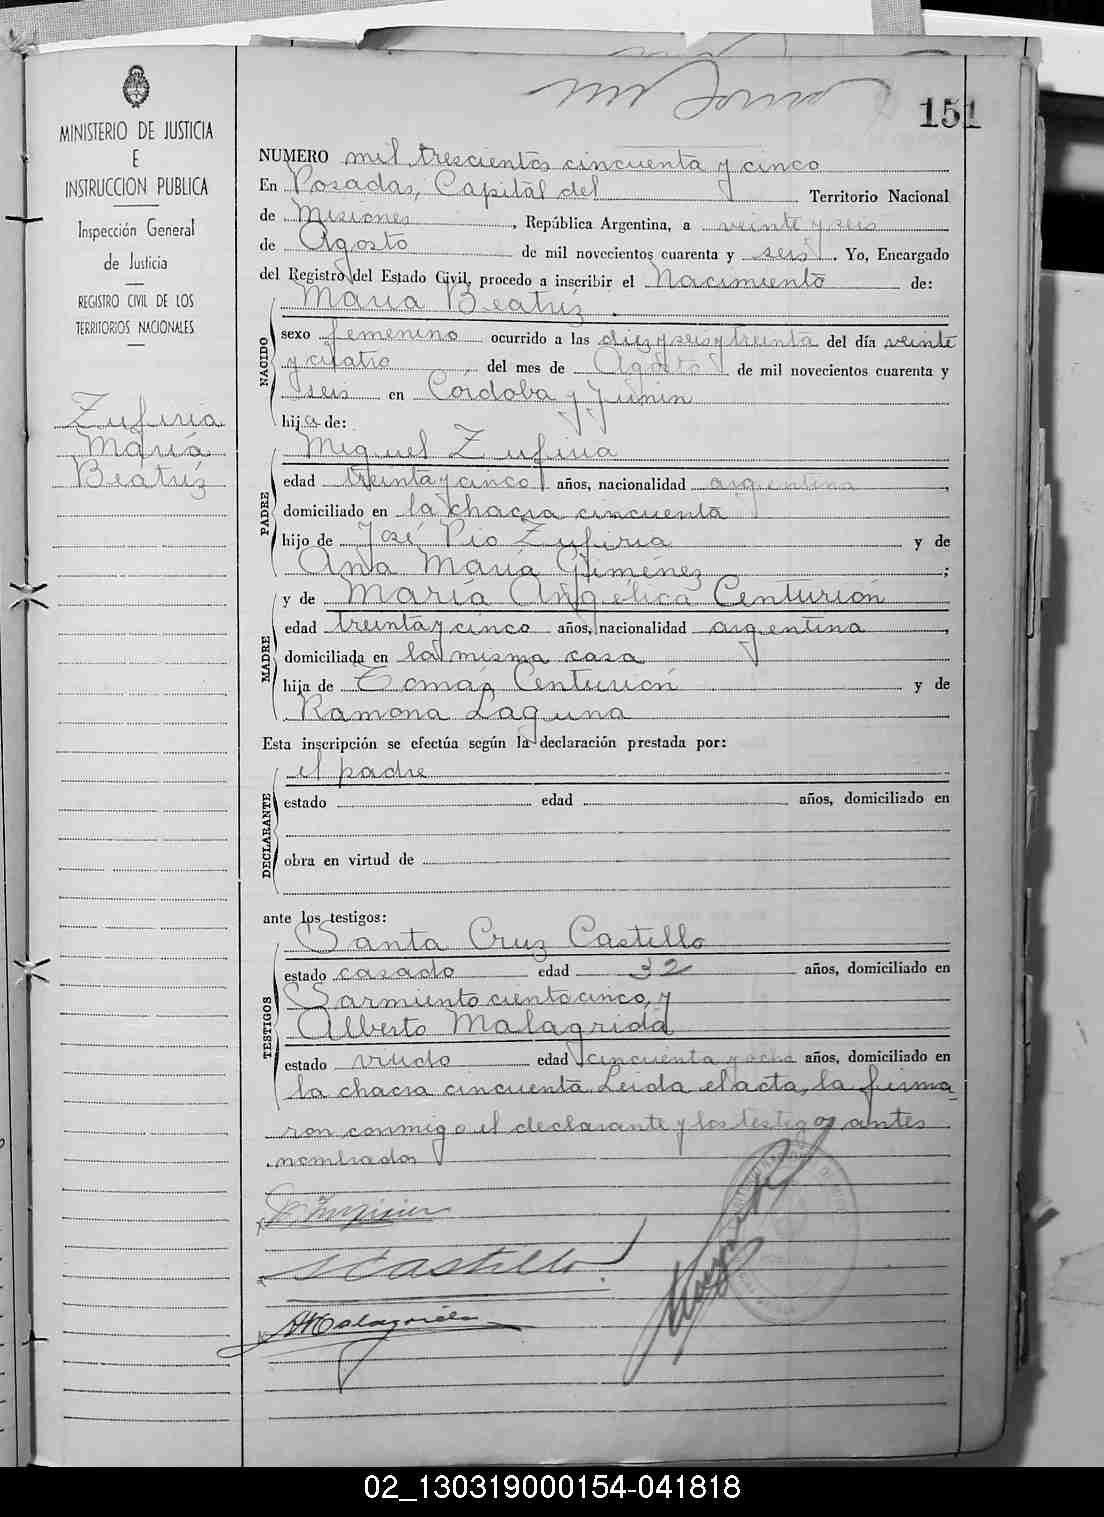 151
MINISTERIO DE JUSTICIA
E
INSTRUCCION PUBLICA
Inspección General
de Justicia
REGISTRO CIVIL DE LOS
TERRITORIOS NACIONALES
Zufiria
María
Beatriz
NUMERO mil trescientos cincuenta y cinco
En Posadas, Capital del Territorio Nacional
de Misiones, República Argentina, a veinte y seis
de Agosto de mil novecientos cuarenta y seis. Yo, Encargado
del Registro del Estado Civil, procedo a inscribir el Nacimiento de:
NACIDO
María Beatriz
sexo femenino ocurrido a las diez y seis y treinta del día veinte
y cuatro del mes de Agosto de mil novecientos cuarenta y
seis en Córdoba y Junin
hija de:
PADRE
Miguel Zufiria
edad treinta y cinco años, nacionalidad argentina,
domiciliado en la chacra cincuenta
hijo de José Pio Zufiria y de
Ana María Giménez;
MADRE
y de María Angélica Centurión
edad treinta y cinco años, nacionalidad argentina,
domiciliada en la misma casa
hija de Tomás Centurión y de
Ramona Laguna
Esta inscripción se efectúa según la declaración prestada por:
DECLARANTE
el padre
estado edad años, domiciliado en
obra en virtud de
ante los testigos:
TESTIGOS
Santa Cruz Castillo
estado casado edad 32 años, domiciliado en
Sarmiento ciento cinco, y
Alberto Malagrida
estado viudo edad cincuenta y ocho años, domiciliado en
la chacra cincuenta. Leida el acta, la firma-
ron conmigo el declarante y los testigos antes
nombrados
SCastillo
AMalagrida
02_130319000154-041818